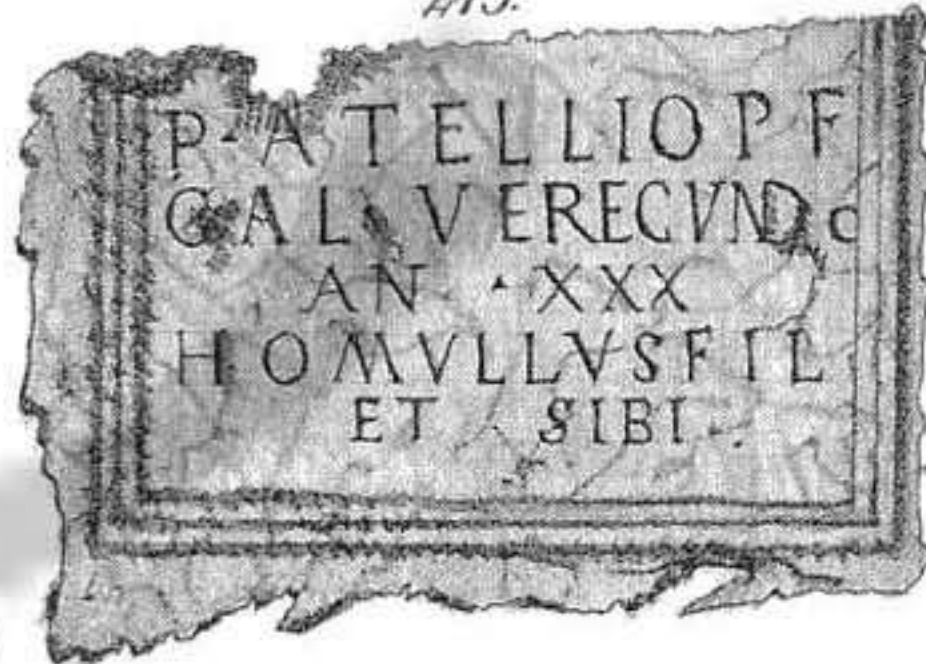 P·ATELLIO P F
GAL VERECVNDO
AN · XXX
HOMVLLVS FIL
ET SIBI